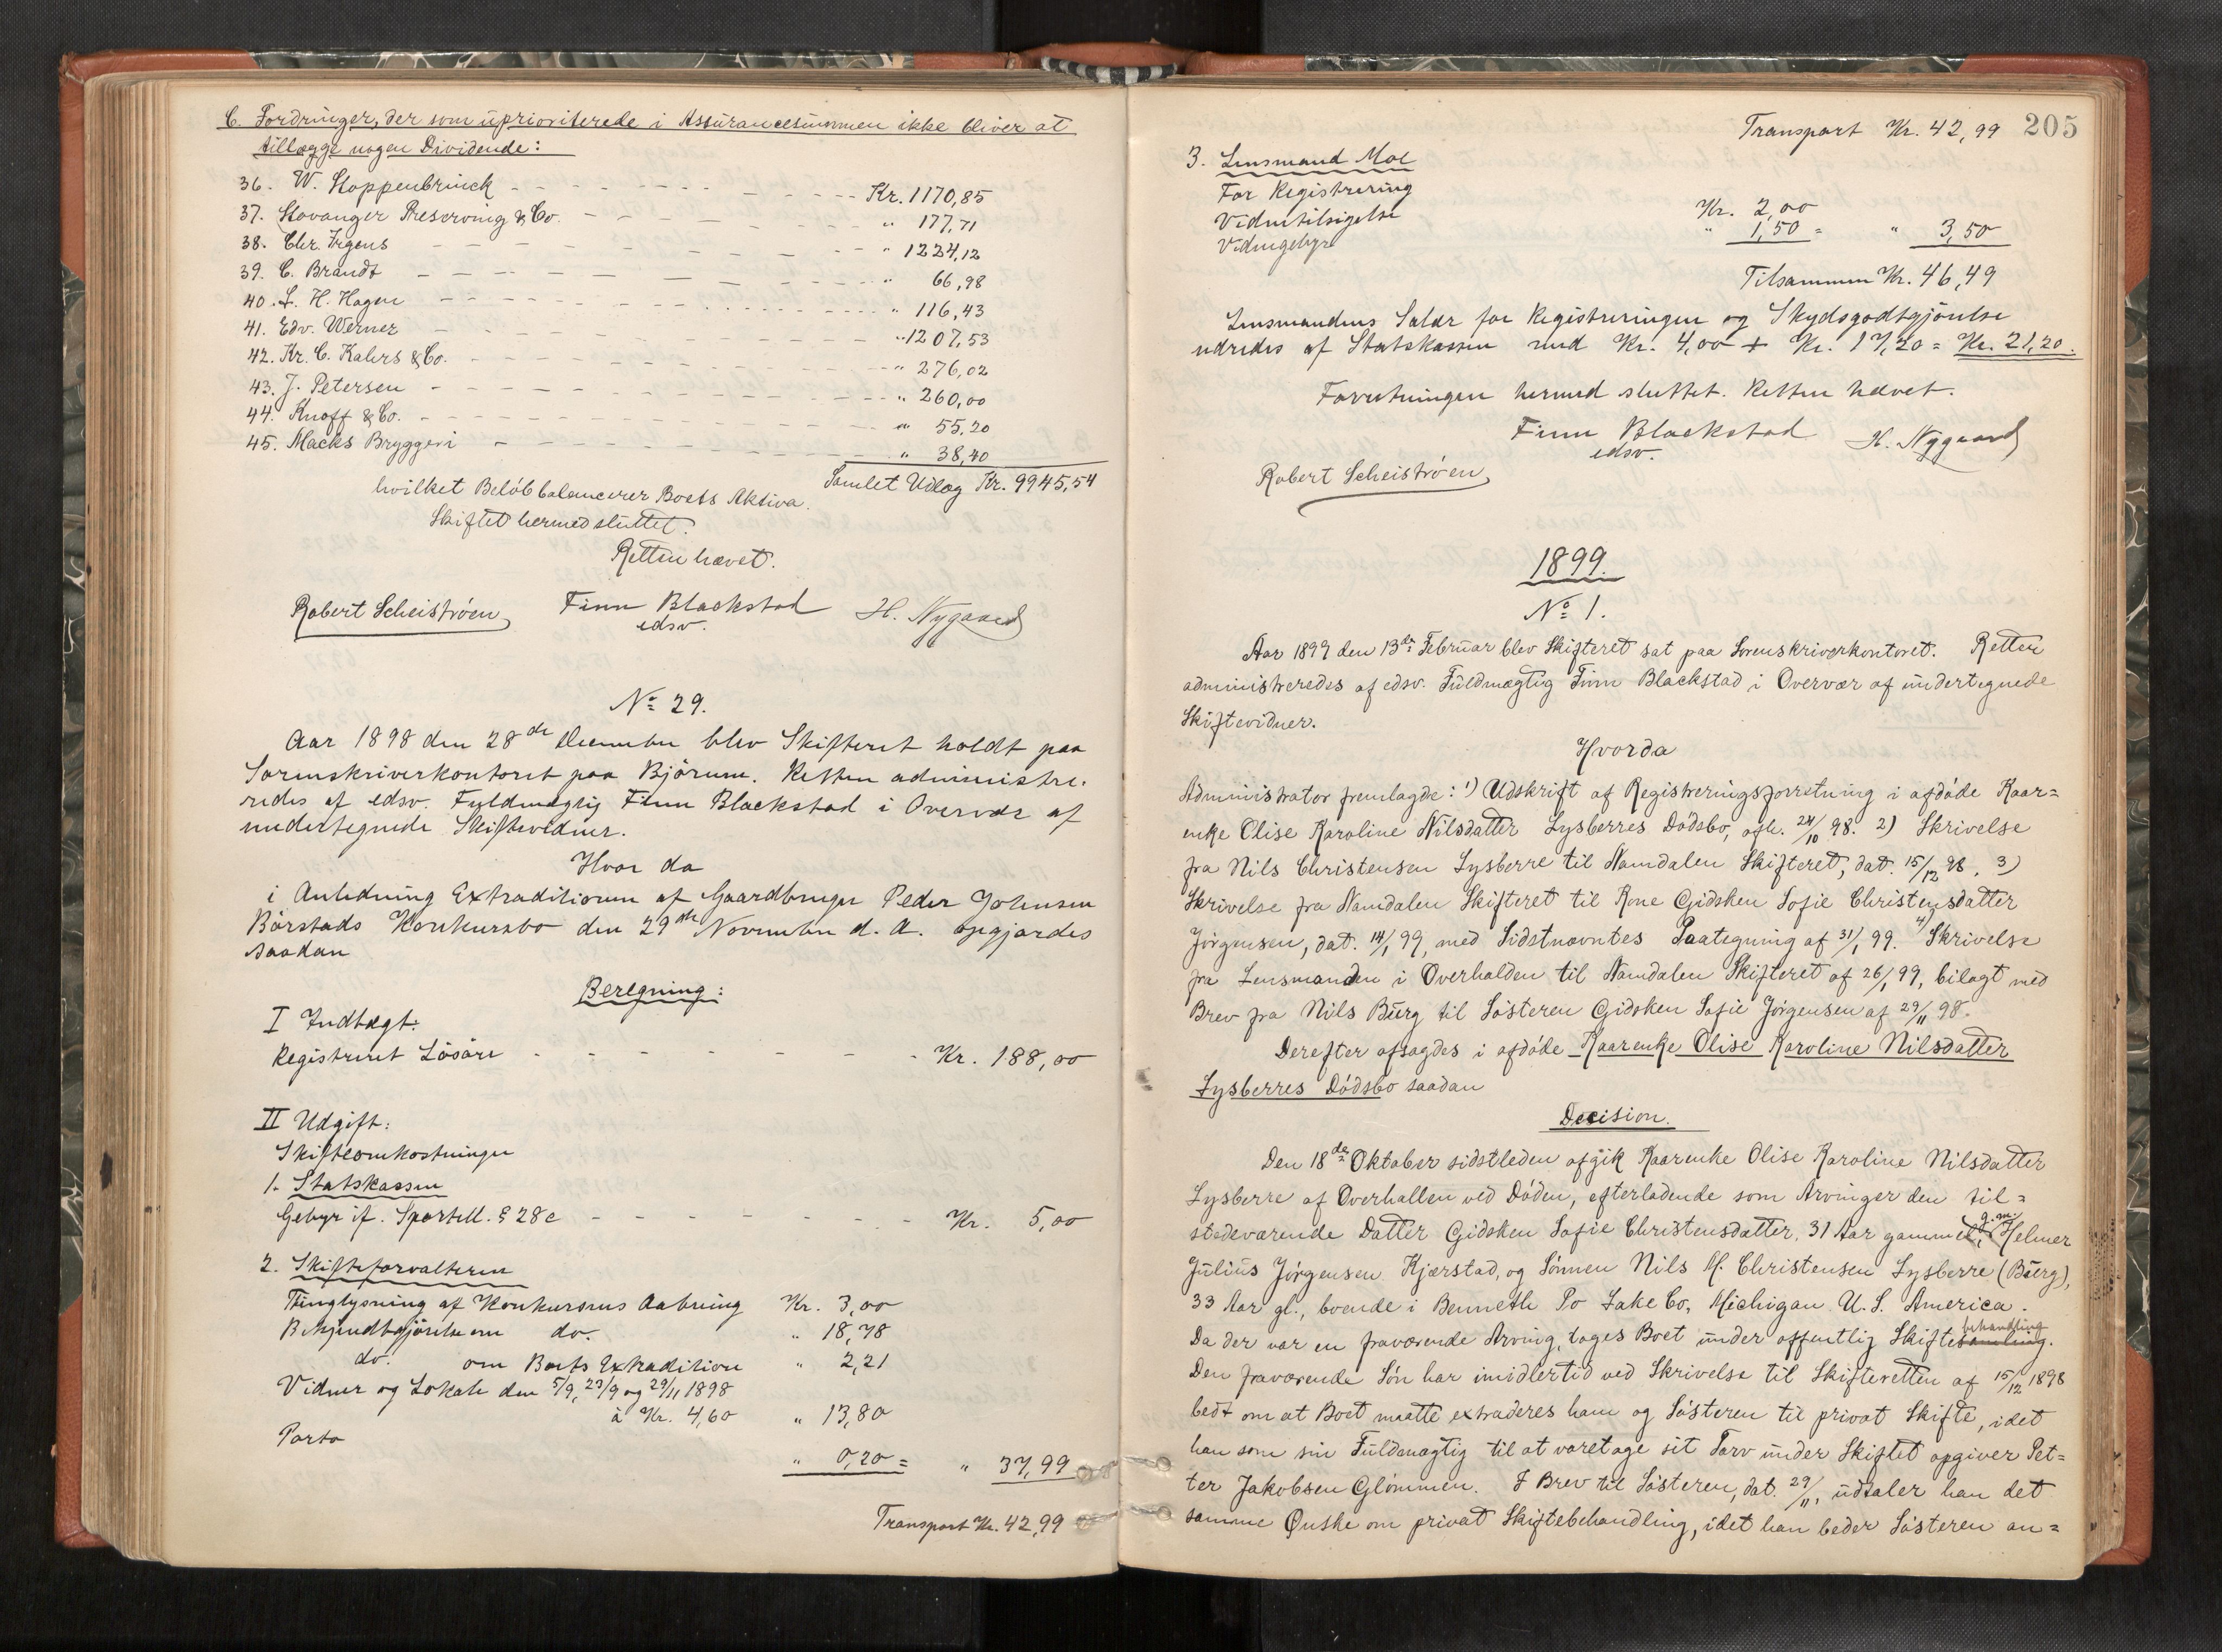 C. Fordringer, der som uprioriterede i Assurancesummen ikke bliver at
tillægge nogen Dividende:
36. W. Stoppenbrinck - - - - - - - - - - Kr. 1170,85
37. Stavanger Preserving & Co. - - - - - - - " 177,71
38. Chr. Irgens - - - - - - - - " 1224,12
39. C. Brandt - - - - - - - - - " 66,98
40. L. H. Hagen - - - - - - - - - " 116,43
41. Edv. Werner - - - - - - - - " 1207,53
42. Kr. C. Kahrs & Co. - - - - - - - - " 276,02
43. J. Petersen - - - - - - - - - " 260,00
44. Knoff & Co. - - - - - - - - - " 55,20
45. Macks Bryggeri - - - - - - - " 38,40
Samlet Udlæg Kr. 9945,54
hvilket Beløb balancerer Boets Aktiva.
Skiftet hermed sluttet.
Retten hævet.
Robert Scheistrøen Finn Blackstad H. Nygaard
edsv.
No 29.
Aar 1898 den 28de December blev Skifteret holdt paa
Sorenskriverkontoret paa Bjørum. Retten administre-
redes af edsv. Fuldmægtig Finn Blackstad i Overvær af
undertegnede Skiftevidner.
Hvor da
i Anledning Extraditionen af Gaardbruger Peder Johnsen
Børstads Konkursbo den 29de November d. A. opgjordes
saadan
Beregning:
I Indtægt:
Registreret Løsøre - - - - - - - Kr. 188,00
II Udgift:
Skifteomkostninger
1. Statskassen
Gebyr if. Sportell. § 28 c - - - - - - - Kr. 5,00
2. Skifteforvalteren
Thinglysning af Konkursens Aabning Kr. 3,00
Bekjendtgjørelse om do. " 18,78
do. om Boets Extradition " 2,21
Vidner og Lokale den 5/9, 23/9 og 29/11 1898
à Kr. 4,60 " 13,80
Porto
" 0,20 = " 37,99
Transport Kr. 42,99
Transport Kr. 42,99 205
3. Lensmand Moe
For Registrering
Vidnetilsigelse Kr. 2,00
Vidnegebyr " 1,50 = " 3,50
Tilsammen Kr. 46,49
Lensmandens Salær for Registreringen og Skydsgodtgjørelse
udredes af Statskassen med Kr. 4,00 + Kr. 17,20 = Kr. 21,20.
Forretningen hermed sluttet. Retten hævet.
Finn Blackstad H. Nygaard
edsv.
Robert Scheistrøen
1899.
No 1.
Aar 1899 den 13de Februar blev Skifteret sat paa Sorenskriverkontoret. Retten
administreredes af edsv. Fuldmægtig Finn Blackstad i Overvær af undertegnede
Skiftevidner.
Hvorda
Administrator fremlagde: 1) Udskrift af Registreringsforretning i afdøde Kaar=
enke Olise Karoline Nilsdatter Lysberres Dødsbo, afh. 24/10 98. 2) Skrivelse
fra Nils Christensen Lysberre til Namdalen Skifteret, dat. 15/12 98, 3)
Skrivelse fra Namdalen Skifteret til Kone Gidsken Sofie Christensdatter
Jørgensen, dat. 14/1 99, med Sidstnævntes Paategning af 31/1 99. 4) Skrivelse
fra Lensmanden i Overhalden til Namdalen Skifteret af 26/1 99, bilagt med
Brev fra Nils Burg til Søsteren Gidsken Sofie Jørgensen af 29/11 98.
Derefter afsagdes i afdøde Kaarenke Olise Karoline Nilsdatter
Lysberres Dødsbo saadan
Decision.
Den 18de Oktober sidstleden afgik Kaarenke Olise Karoline Nilsdatter
Lysberre af Overhallen ved Døden, efterladende som Arvinger den til=
stedeværende Datter Gidsken Sofie Christensdatter, 31 Aar gammel, g.m. Helmer
Julius Jørgensen Kjærstad, og Sønnen Nils M. Christensen Lysberre (Burg),
33 Aar gl., boende i Benneth Po Lake Co, Michigan U. S. America.
Da der var en fraværende Arving, toges Boet under offentlig Skiftesamling behandling.
Den fraværende Søn har imidlertid ved Skrivelse til Skifteretten af 15/12 1898
bedt om at Boet maatte extraderes ham og Søsteren til privat Skifte, idet
han som sin Fuldmægtig til at varetage sit Tarv under Skiftet opgiver Pet=
ter Jakobsen Glømmen. I Brev til Søsteren, dat. 29/11, udtaler han det
samme Ønske om privat Skiftebehandling, idet han beder Søsteren an=